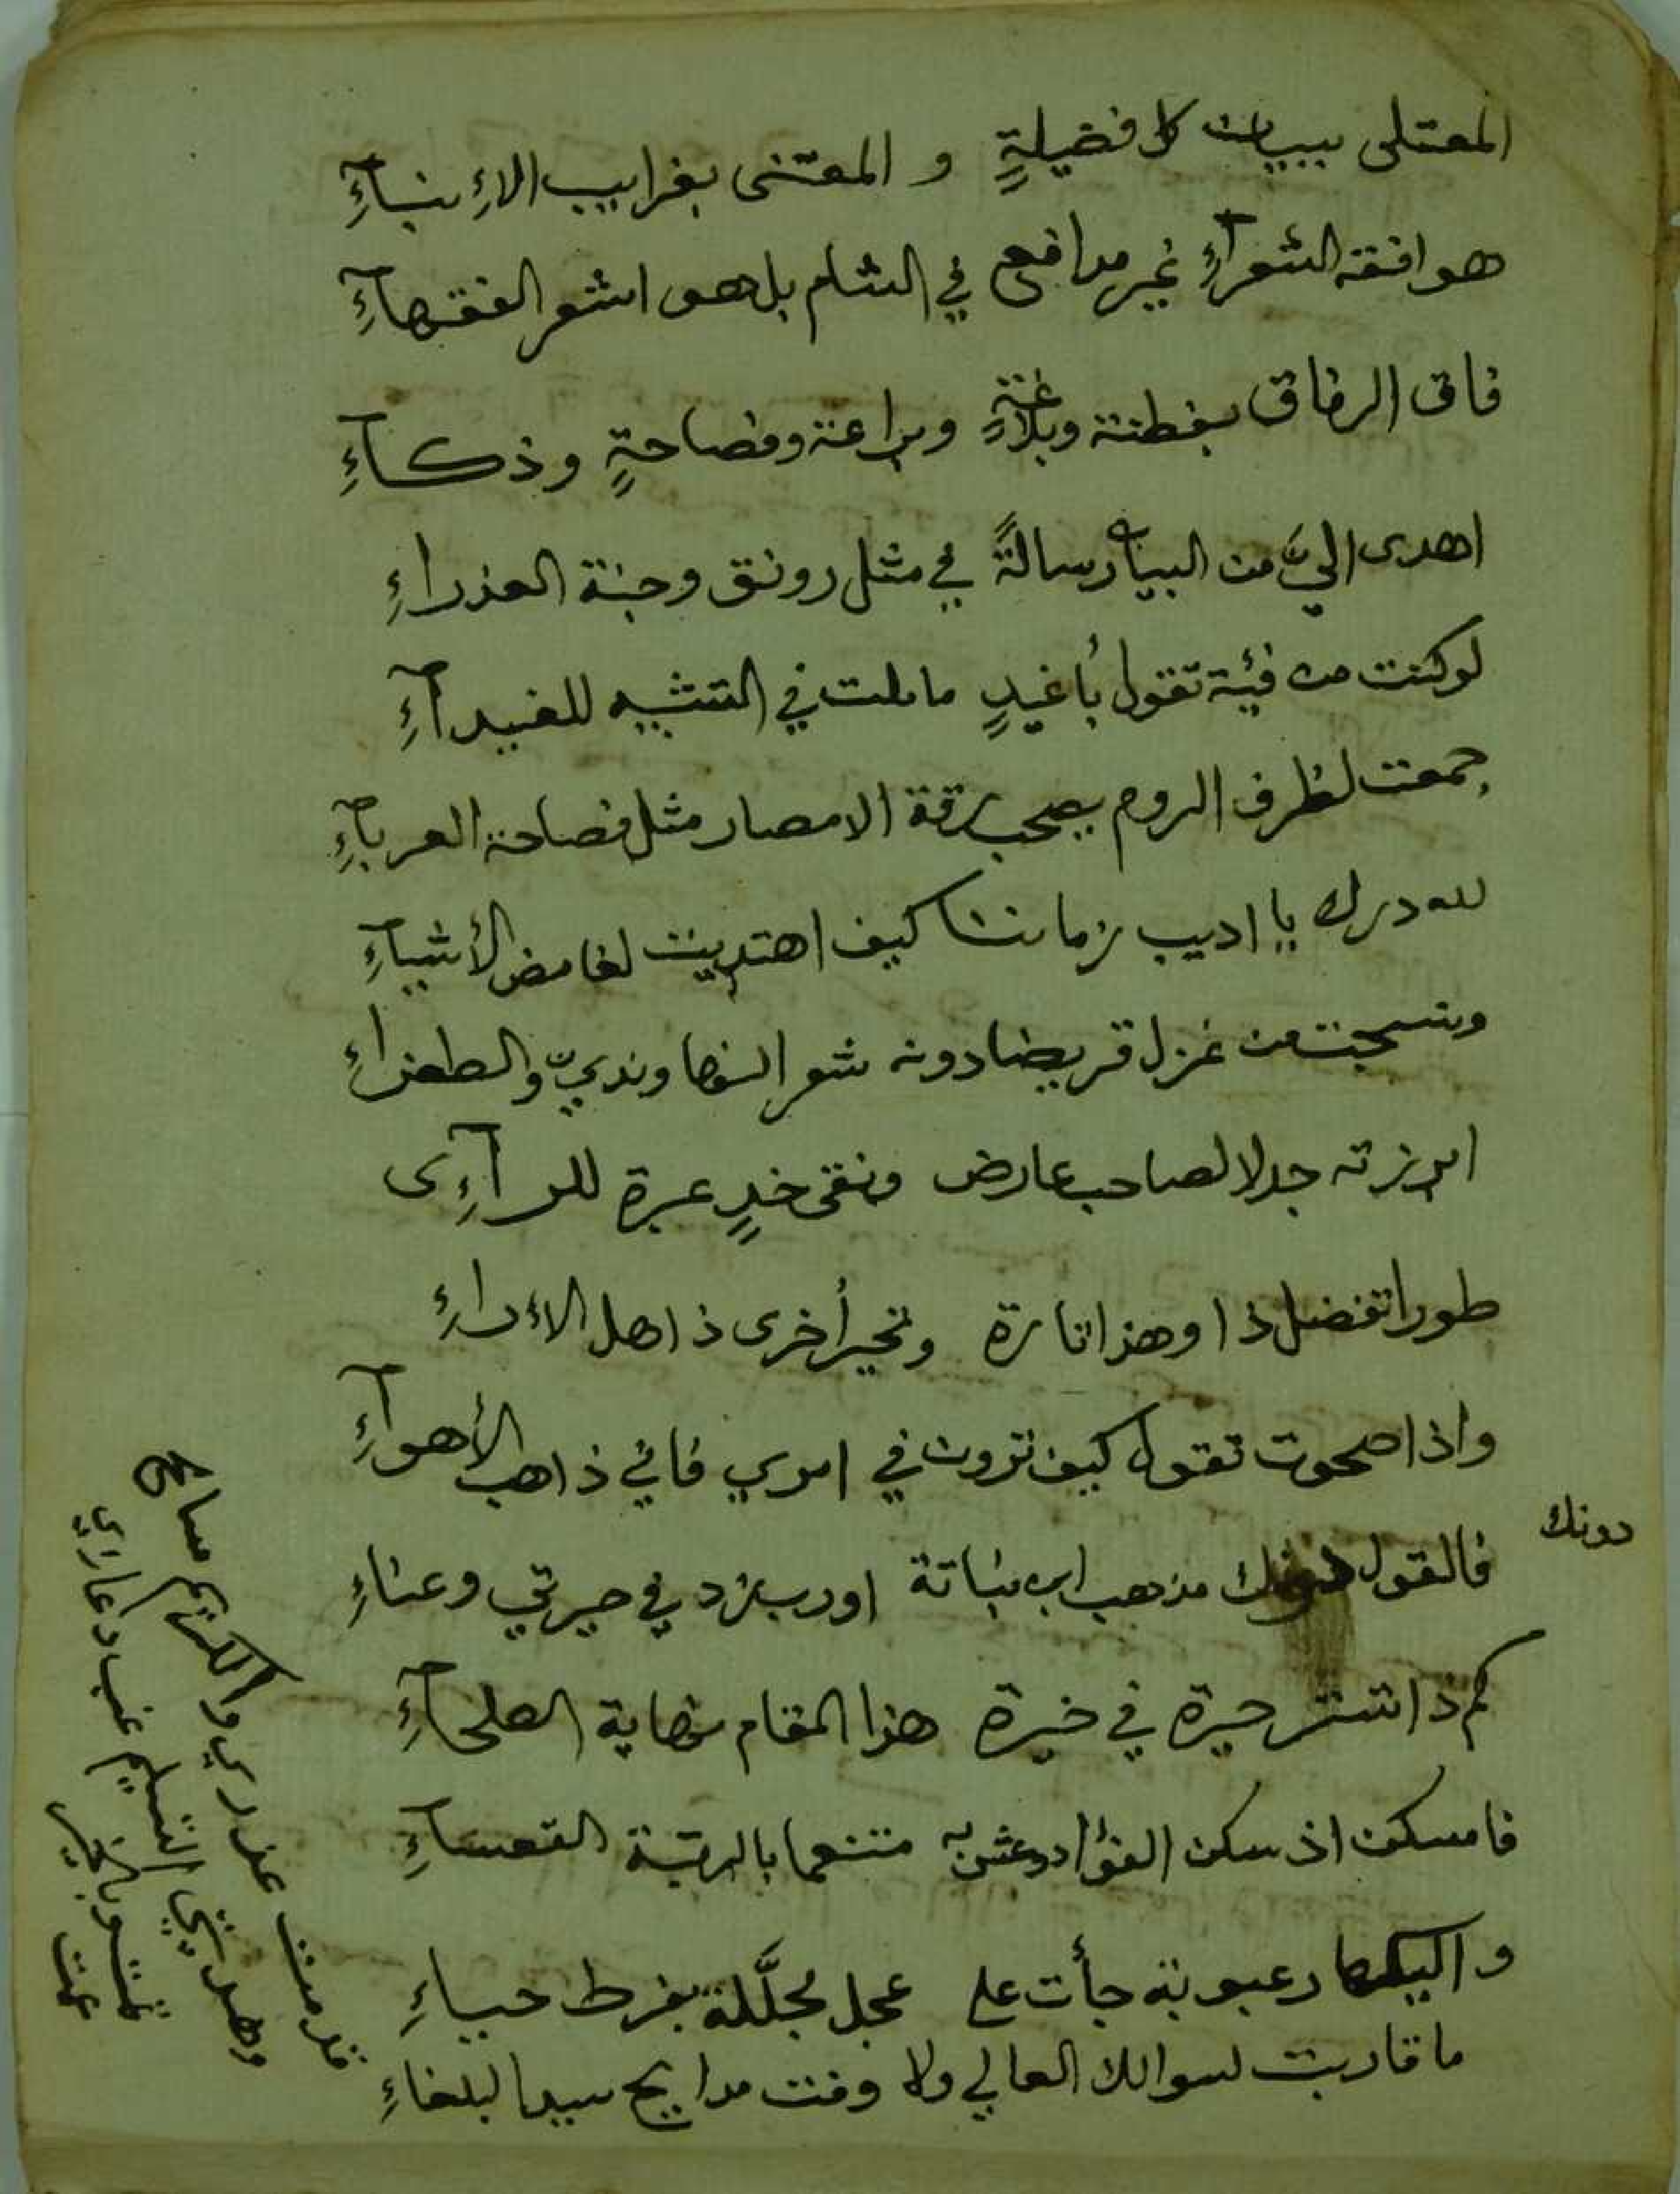 المعتلى ببيان كل فضيلةٍ و المعتنى بغرايب الإنبآءِ
هو افقه الشعرآءِ غير مدافع في الشام بل هو اشعر الفقهآءِ
فاق الرفاق بفطنة وبلاغةٍ وبراعة وفصاحةٍ وذكآءِ
اهدى اليَّ من البيان رسالةً في مثل رونق وجنة العذراءِ
لو كنت من فئية تقول بأغيدٍ ما ملت في التشبيه للغيدآءِ
جمعت لظرف الروم يصحب رقة الامصار مثل فصاحة العربآءِ
لله درك يا اديب زماننا كيف اهتديت لغامض الأشيآءِ
ونسجت من غزل قريضا دونه شعر النهاونديّ والطغراءِ
ابرزته جدلا لصاحب عارض ونقى خدٍ عبرة للرآءِى
طورا تفضل ذا وهذا تارة وتحير أخرى ذاهل الاءراءِ
واذا صحوت تقول كيف ترون في امري فاني ذاهب الأهوآءِ
فالقول دونك مذهب ابن نباتة اورب زد في حيرتي وعناءِ
دونك
كم ذا تستر حيرة في خيرة هذا المقام نهاية الصلحآءِ
فامسكن اذ سكن الفؤاد وعش به متنعما بالرتبة القعساءِ
واليكها رعبوبة جأت على عجل مجلَّلة بفرط حياءِ
ما قاربت لسوالك العالي ولا وفت مدايح سيد البلغاءِ
قدمت عذري والكريم مسامح
وهديتي التسليم غب دعاءي
تمت وبالخير
عمت